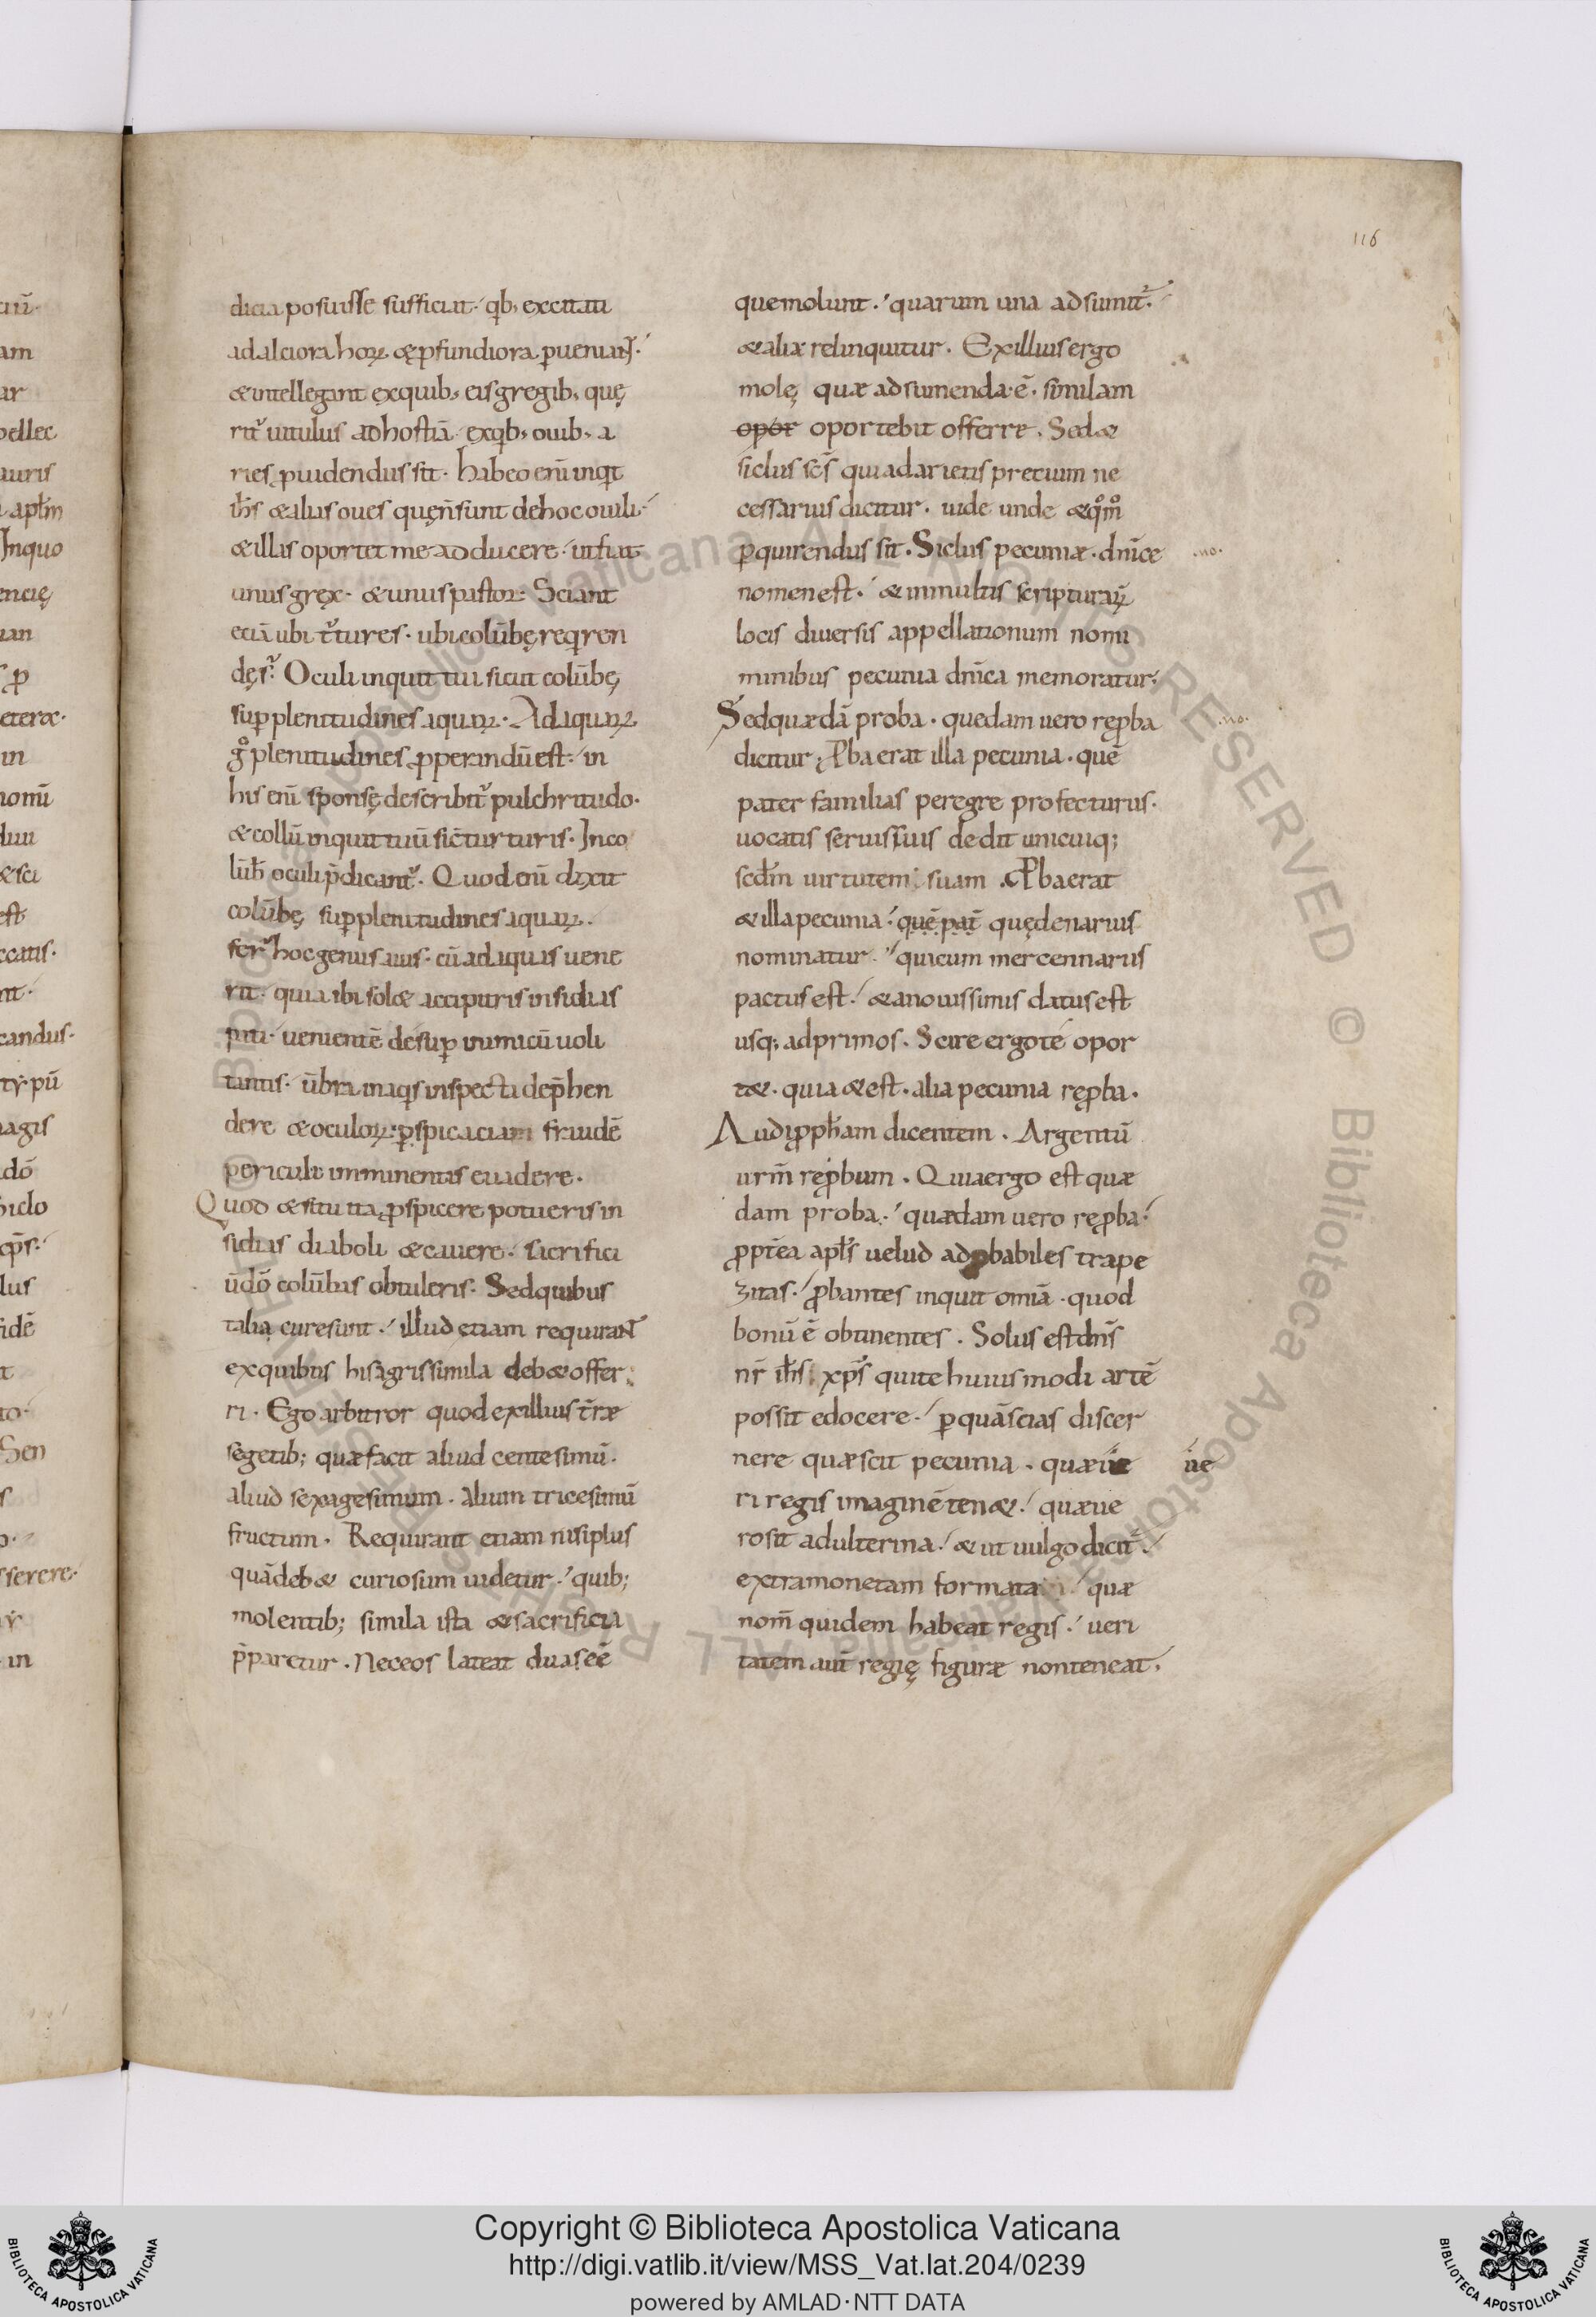 116
dicia posuisse sufficiat· qb; excitati
ad altiora hoꝝ & ꝓfundiora ꝑueniant·
& intellegant ex quib; eis gregib; quę
rit᷒ uitulus ad hostiā· ex qb; ouib; a
ries ꝓuidendus sit· habeo enī inqt
ih̄s & alias oues quę n̄ sunt de hoc ouili·
& illas oportet me adducere· ut fiat
unus grex· & unus pastor· Sciant
eciā ubi t᷒tures· ubi colūbę reqren
dę s᷒· Oculi inquit tui sicut colūbę
suꝑ plenitudines aquaꝝ· Ad aquaꝝ
gͦ plenitudines ꝓperandū est· in
his enī sponsę describit᷒ pulchritudo·
& collū inquit tuū sic̄ turturis· In co
lūb̄ oculi p̄dicant᷒· Quod enī dixit
colūbę suꝑ plenitudines aquaꝝ·
fer᷒ hoc genus auis· cū ad aquas uene
rit· quia ibi sol& accipitris insidias
pati· uenientē desuꝑ inimicū uoli
tantis· ūbra in aqis inspecta dep̄hen
dere & oculoꝝ ꝑspicaciam fraudē
periculi imminentis euadere·
Quod & si tu ita ꝓspicere potueris in
sidias diaboli & cauere· sacrifici
ūdō colūbas obtuleris· Sed quibus
talia cure sunt· illud etiam requirant
ex quibus his agris simila deb& offer
ri· Ego arbitror quod ex illius t̄ræ
segetib; quæ facit aliud centesimū·
aliud sexagesimum· alium tricesimū
fructum· Requirant etiam nisi plus
quā deb& curiosum uidetur· quib;
molentib; simila ista & sacrificia
p̄paretur· Nec eos lateat duas eē
que molunt· quarum una adsumit᷒·
& aliæ relinquitur· Ex illius ergo
molę quæ adsumenda ē· similam
opor oportebit offerre· Sed &
siclus sc̄s qui ad arietis precium ne
cessarius dicitur· uide unde & qͦmͦ
ꝑquirendus sit· Siclus pecuniæ· dnīce ·no·
nomen est· & in multis scripturaꝝ
locis diuersis appellationum nomi
minibus pecunia dnīca memoratur·
Sed quædā proba· quedam uero reꝓba ·no·
dicitur· Ꝓba erat illa pecunia· quē
pater familias peregre profecturus·
uocatis seruis suis dedit unicuiq;
scdm̄ uirtutem suam· Ꝓba erat
& illa pecunia· quē pat̄ quę denarius
nominatur· qui cum mercennariis
pactus est· & a nouissimis datus est
usq; ad primos· Scire ergo te opor
t&· quia & est· alia pecunia reꝓba·
Audi ꝓph̄am dicentem· Argentū
urm̄ reꝓbum· Quia ergo est quæ
dam proba· quædam uero reꝓba·
ꝓpt̄ea apl̄s uelud ad ꝓbabiles trape
zitas· ꝓbantes inquit omīā· quod
bonū ē obtinentes· Solus est dn̄s
nr̄ ih̄s xp̄s qui te huiusmodi artē
possit edocere· ꝑ quā scias discer
nere quæ sit pecunia· quæ ue ue
ri regis imaginē ten&· quæ ue
ro sit adulterina· & ut uulgo dicit᷒·
extra monetam formata· quæ
nom̄ quidem habeat regis· ueri
tatem aut̄ regię figuræ non teneat·
Copyright © Biblioteca Apostolica Vaticana
http://digi.vatlib.it/view/MSS_Vat.lat.204/0239
powered by AMLAD·NTT DATA